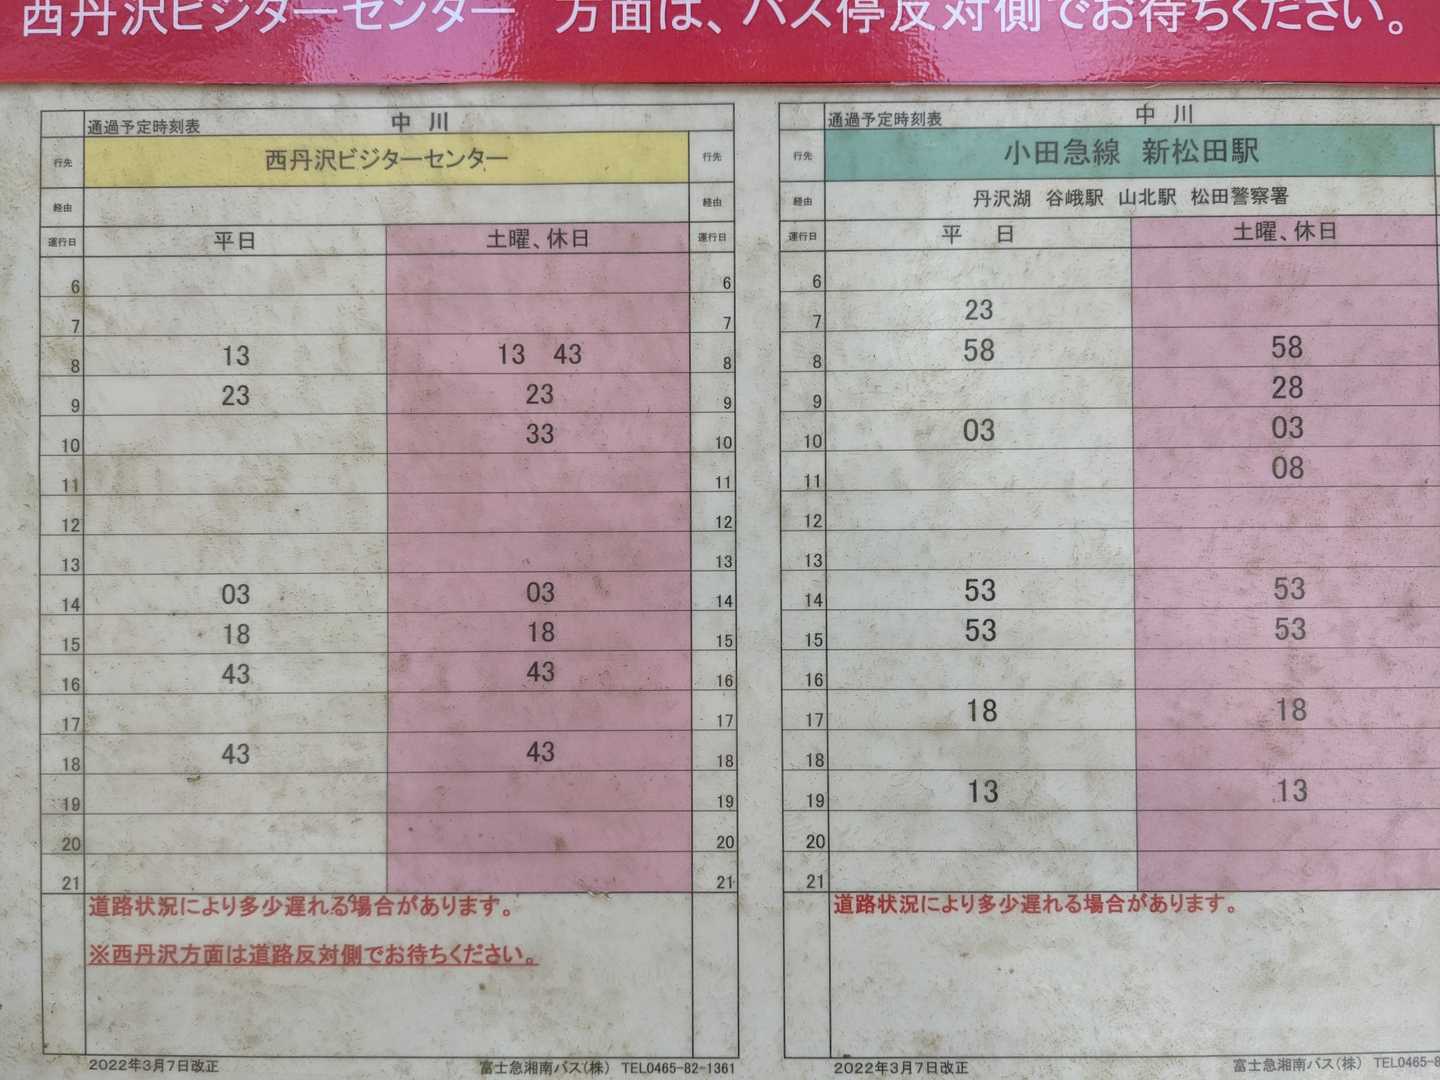 西丹沢ビジターセンター　方面は、バス停反対側でお待ちください。
通過予定時刻表　中 川
行先　西丹沢ビジターセンター　行先
経由　経由
運行日　平日　土曜、休日　運行日
6　6
7　7
8　13　13 43　8
9　23　23　9
10　33　10
11　11
12　12
13　13
14　03　03　14
15　18　18　15
16　43　43　16
17　17
18　43　43　18
19　19
20　20
21　21
道路状況により多少遅れる場合があります。
※西丹沢方面は道路反対側でお待ちください。
2022年3月7日改正　富士急湘南バス(株)　TEL0465-82-1361
通過予定時刻表　中 川
行先　小田急線 新松田駅
経由　丹沢湖 谷峨駅 山北駅 松田警察署
運行日　平 日　土曜、休日
6
7　23
8　58　58
9　28
10　03　03
11　08
12
13
14　53　53
15　53　53
16
17　18　18
18
19　13　13
20
21
道路状況により多少遅れる場合があります。
2022年3月7日改正　富士急湘南バス(株)　TEL0465-8